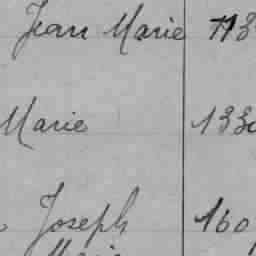 Jean Marie 113
Marie 133
Joseph 160
Marie